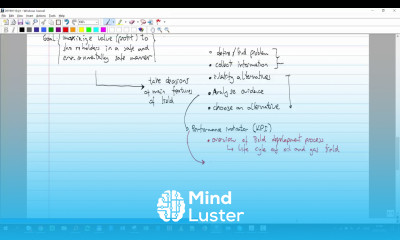 Goal
maximize value (profit) to
in a safe and
environmentally safe manner
take decisions
of main features
of field
• define / find problem
• collect information
• identify alternatives
• Analyse evidence
• choose an alternative
Performance indicator (KPI)
• overview of field development process
↳ life cycle of oil and gas field
Mind
Luster